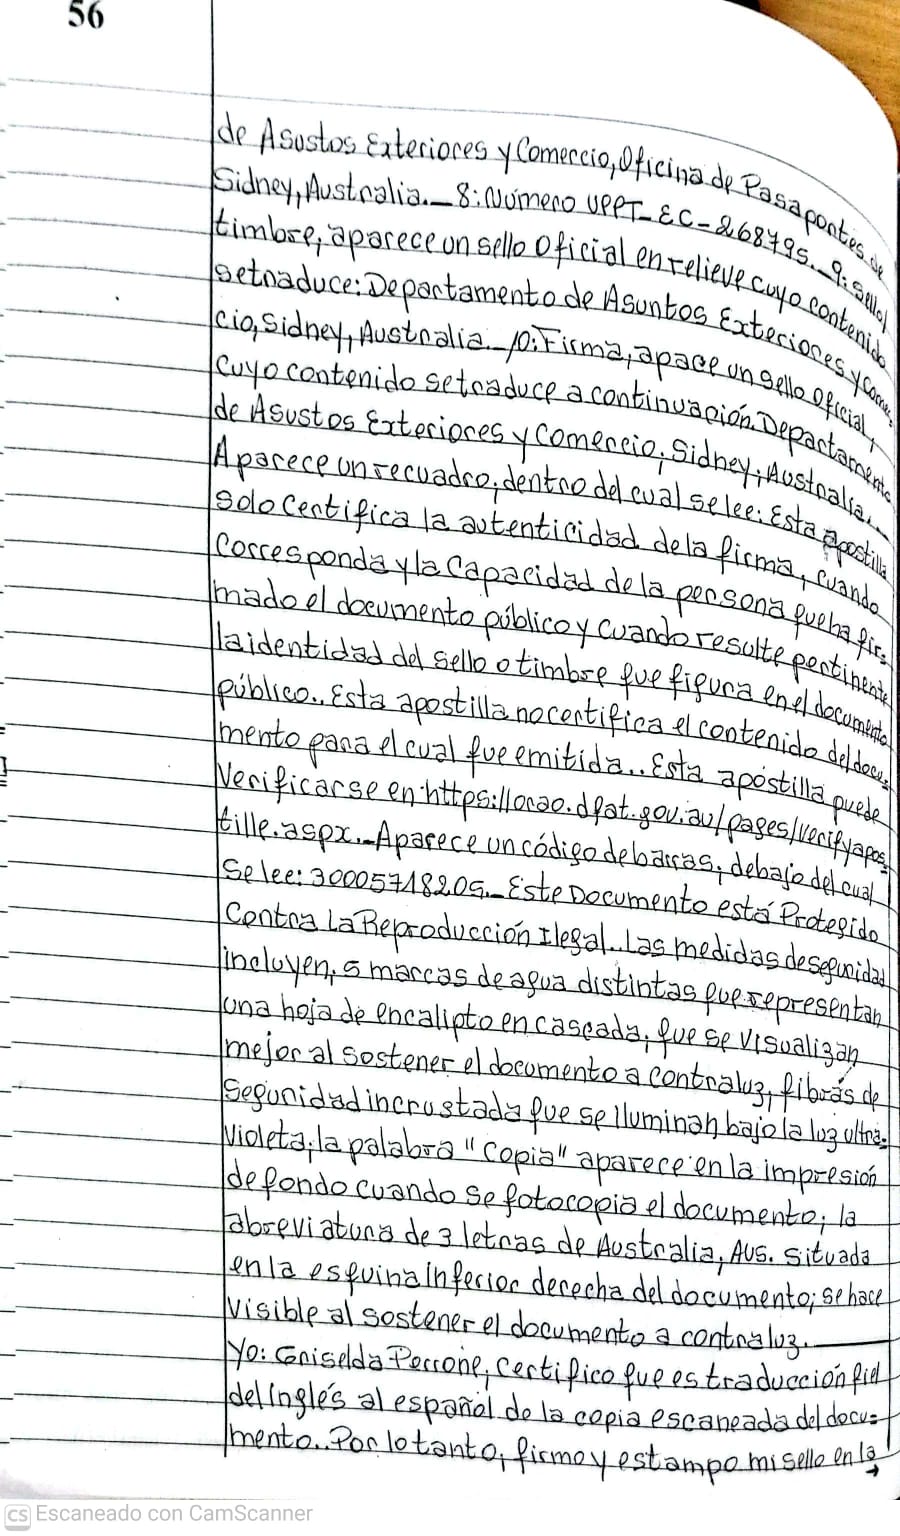 56
de Asustos Exteriores y Comercio, Oficina de Pasaportes de
Sidney, Australia._ 8: Número UPPT-EC-268795._ 9: Sello/
timbre, aparece un sello Oficial en relieve cuyo contenido
se traduce: Departamento de Asuntos Exteriores y Comer=
cio, Sidney, Australia._ 10: Firma, apace un sello Oficial,
Cuyo contenido se traduce a continuación. Departamento
de Asustos Exteriores y Comercio, Sidney, Australia._
Aparece un recuadro, dentro del cual se lee: Esta apostilla
Solo Certifica la autenticidad de la firma, Cuando
Corresponda y la Capacidad de la persona que ha fir=
mado el documento público y Cuando resulte pertinente
la identidad del sello o timbre que figura en el documento
público.. Esta apostilla no certifica el contenido del docu=
mento para el cual fue emitida.. Esta apostilla puede
Verificarse en https://orao.dfat.gov.au/pages/verifyapos=
tille.aspx._ Aparece un código de barras, debajo del cual
Se lee: 30005718205._ Este Documento está Protegido
Contra La Reproducción Ilegal. Las medidas de seguridad
incluyen, 5 marcas de agua distintas que representan
una hoja de encalipto en cascada, que se visualizan
mejor al sostener el documento a contraluz, fibras de
Seguridad incrustada que se iluminan bajo la luz ultra=
violeta, la palabra "Copia" aparece en la impresión
de fondo cuando se fotocopia el documento; la
abreviatura de 3 letras de Australia, AUS. situada
en la esquina inferior derecha del documento; se hace
visible al sostener el documento a contraluz.
Yo: Griselda Perrone, Certifico que es traducción fiel
del inglés al español de la copia escaneada del docu=
mento.. Por lo tanto, firmo y estampo mi sello en la →
CS Escaneado con CamScanner